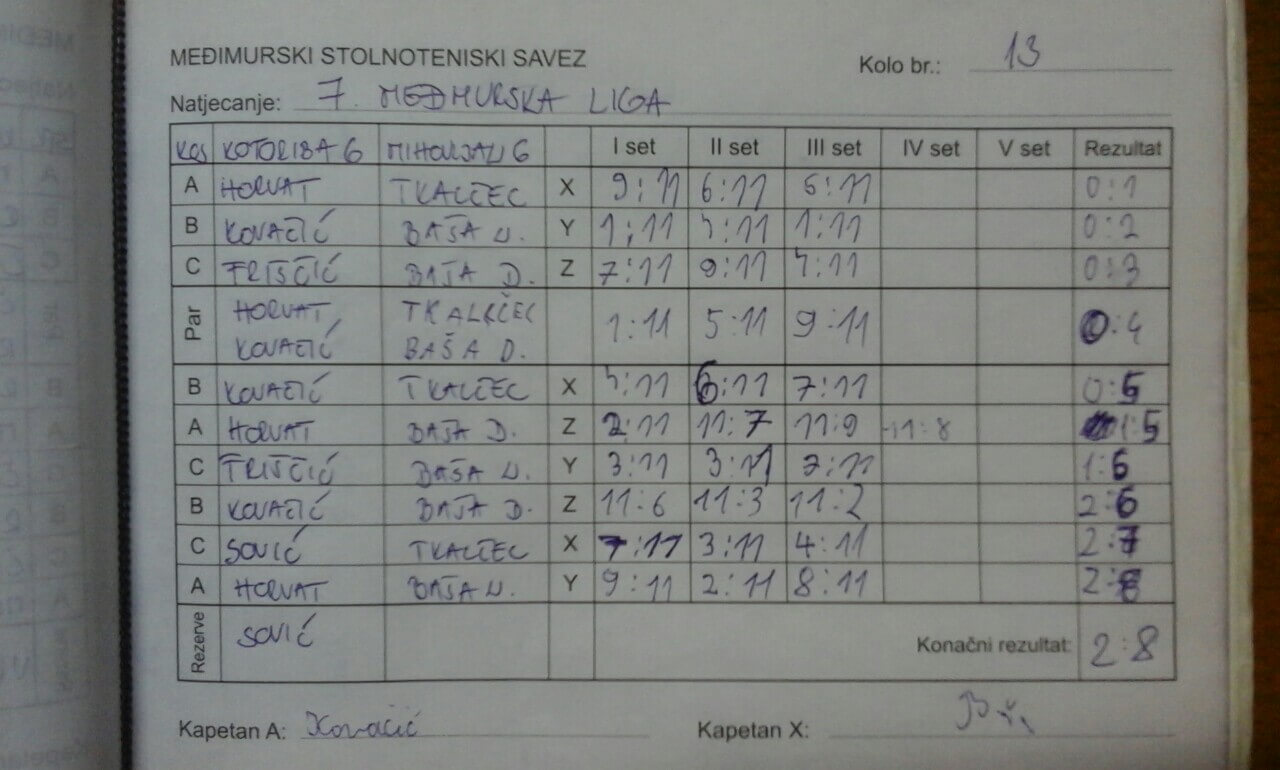 MEĐIMURSKI STOLNOTENISKI SAVEZ
Kolo br.: 13
Natjecanje: 7. MEĐMURSKA LIGA
KOTORIBA G MIHOVLJAN G I set II set III set IV set V set Rezultat
A HORVAT TKALČEC X 9:11 6:11 5:11 0:1
B KOVAČIĆ BAŠA N. Y 1:11 5:11 1:11 0:2
C TRIŠČIĆ BAŠA D. Z 7:11 9:11 4:11 0:3
Par HORVAT TKALČEC 1:11 5:11 9:11 0:4
KOVAČIĆ BAŠA D.
B KOVAČIĆ TKALČEC X 5:11 6:11 7:11 0:5
A HORVAT BAŠA D. Z 2:11 11:7 11:9 11:8 1:5
C TRIŠČIĆ BAŠA N. Y 3:11 3:11 7:11 1:6
B KOVAČIĆ BAŠA D. Z 11:6 11:3 11:2 2:6
C SOVIĆ TKALČEC X 7:11 3:11 4:11 2:7
A HORVAT BAŠA N. Y 9:11 2:11 8:11 2:8
Rezerve SOVIĆ Konačni rezultat: 2:8
Kapetan A: Kovačić Kapetan X: